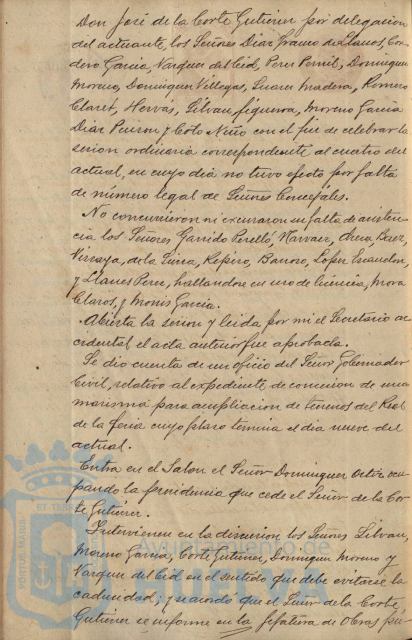 Don José de la Corte Gutierrez por delegacion
del actuante, los Señores Diaz Franco de Llanos, Cor-
dero Garcia, Vazquez del Cid, Perez Pernil, Dominguez
Moreno, Dominguez Villegas, Suarez Madera, Romero
Claret, Hervás, Silvan Figueroa, Moreno Garcia
Diaz y Coto Niño con el fin de celebrar la
sesion ordinaria correspondiente al cuatro del
actual, en cuyo dia no tuvo efecto por falta
de número legal de Señores Concejales.
No concurrieron ni excusaron su falta de asisten-
cia los Señores Garrido Perelló, Narvaez, Baez,
de la Repiso, Barroso, Lopez
y Llanes Perez, hallandose en uso de licencia, Mora
Claros, y Monis Garcia.
Abierta la sesion y leida por mi el Secretario ac-
cidental el acta anterior fue aprobada.
Se dio cuenta de un oficio del Señor Gobernador
Civil, relativo al expediente de concesion de una
marisma para ampliacion de terrenos del Real
de la feria cuyo plazo termina el dia nueve del
actual.
Entra en el Salon el Señor Dominguez Ortiz ocu-
pando la presidencia que cede el Señor de la Cor-
te Gutierrez.
Intervienen en la discusion los Señores Silvan,
Moreno Garcia, Corte Gutierrez, Dominguez Moreno y
Vazquez del Cid en el sentido que debe evitarse la
caducidad; y se acordó que el Señor de la Corte
Gutierrez se informe en la Jefatura de Obras pú-
PORTUS MARIS
ET TERRAE
Ayuntamiento de